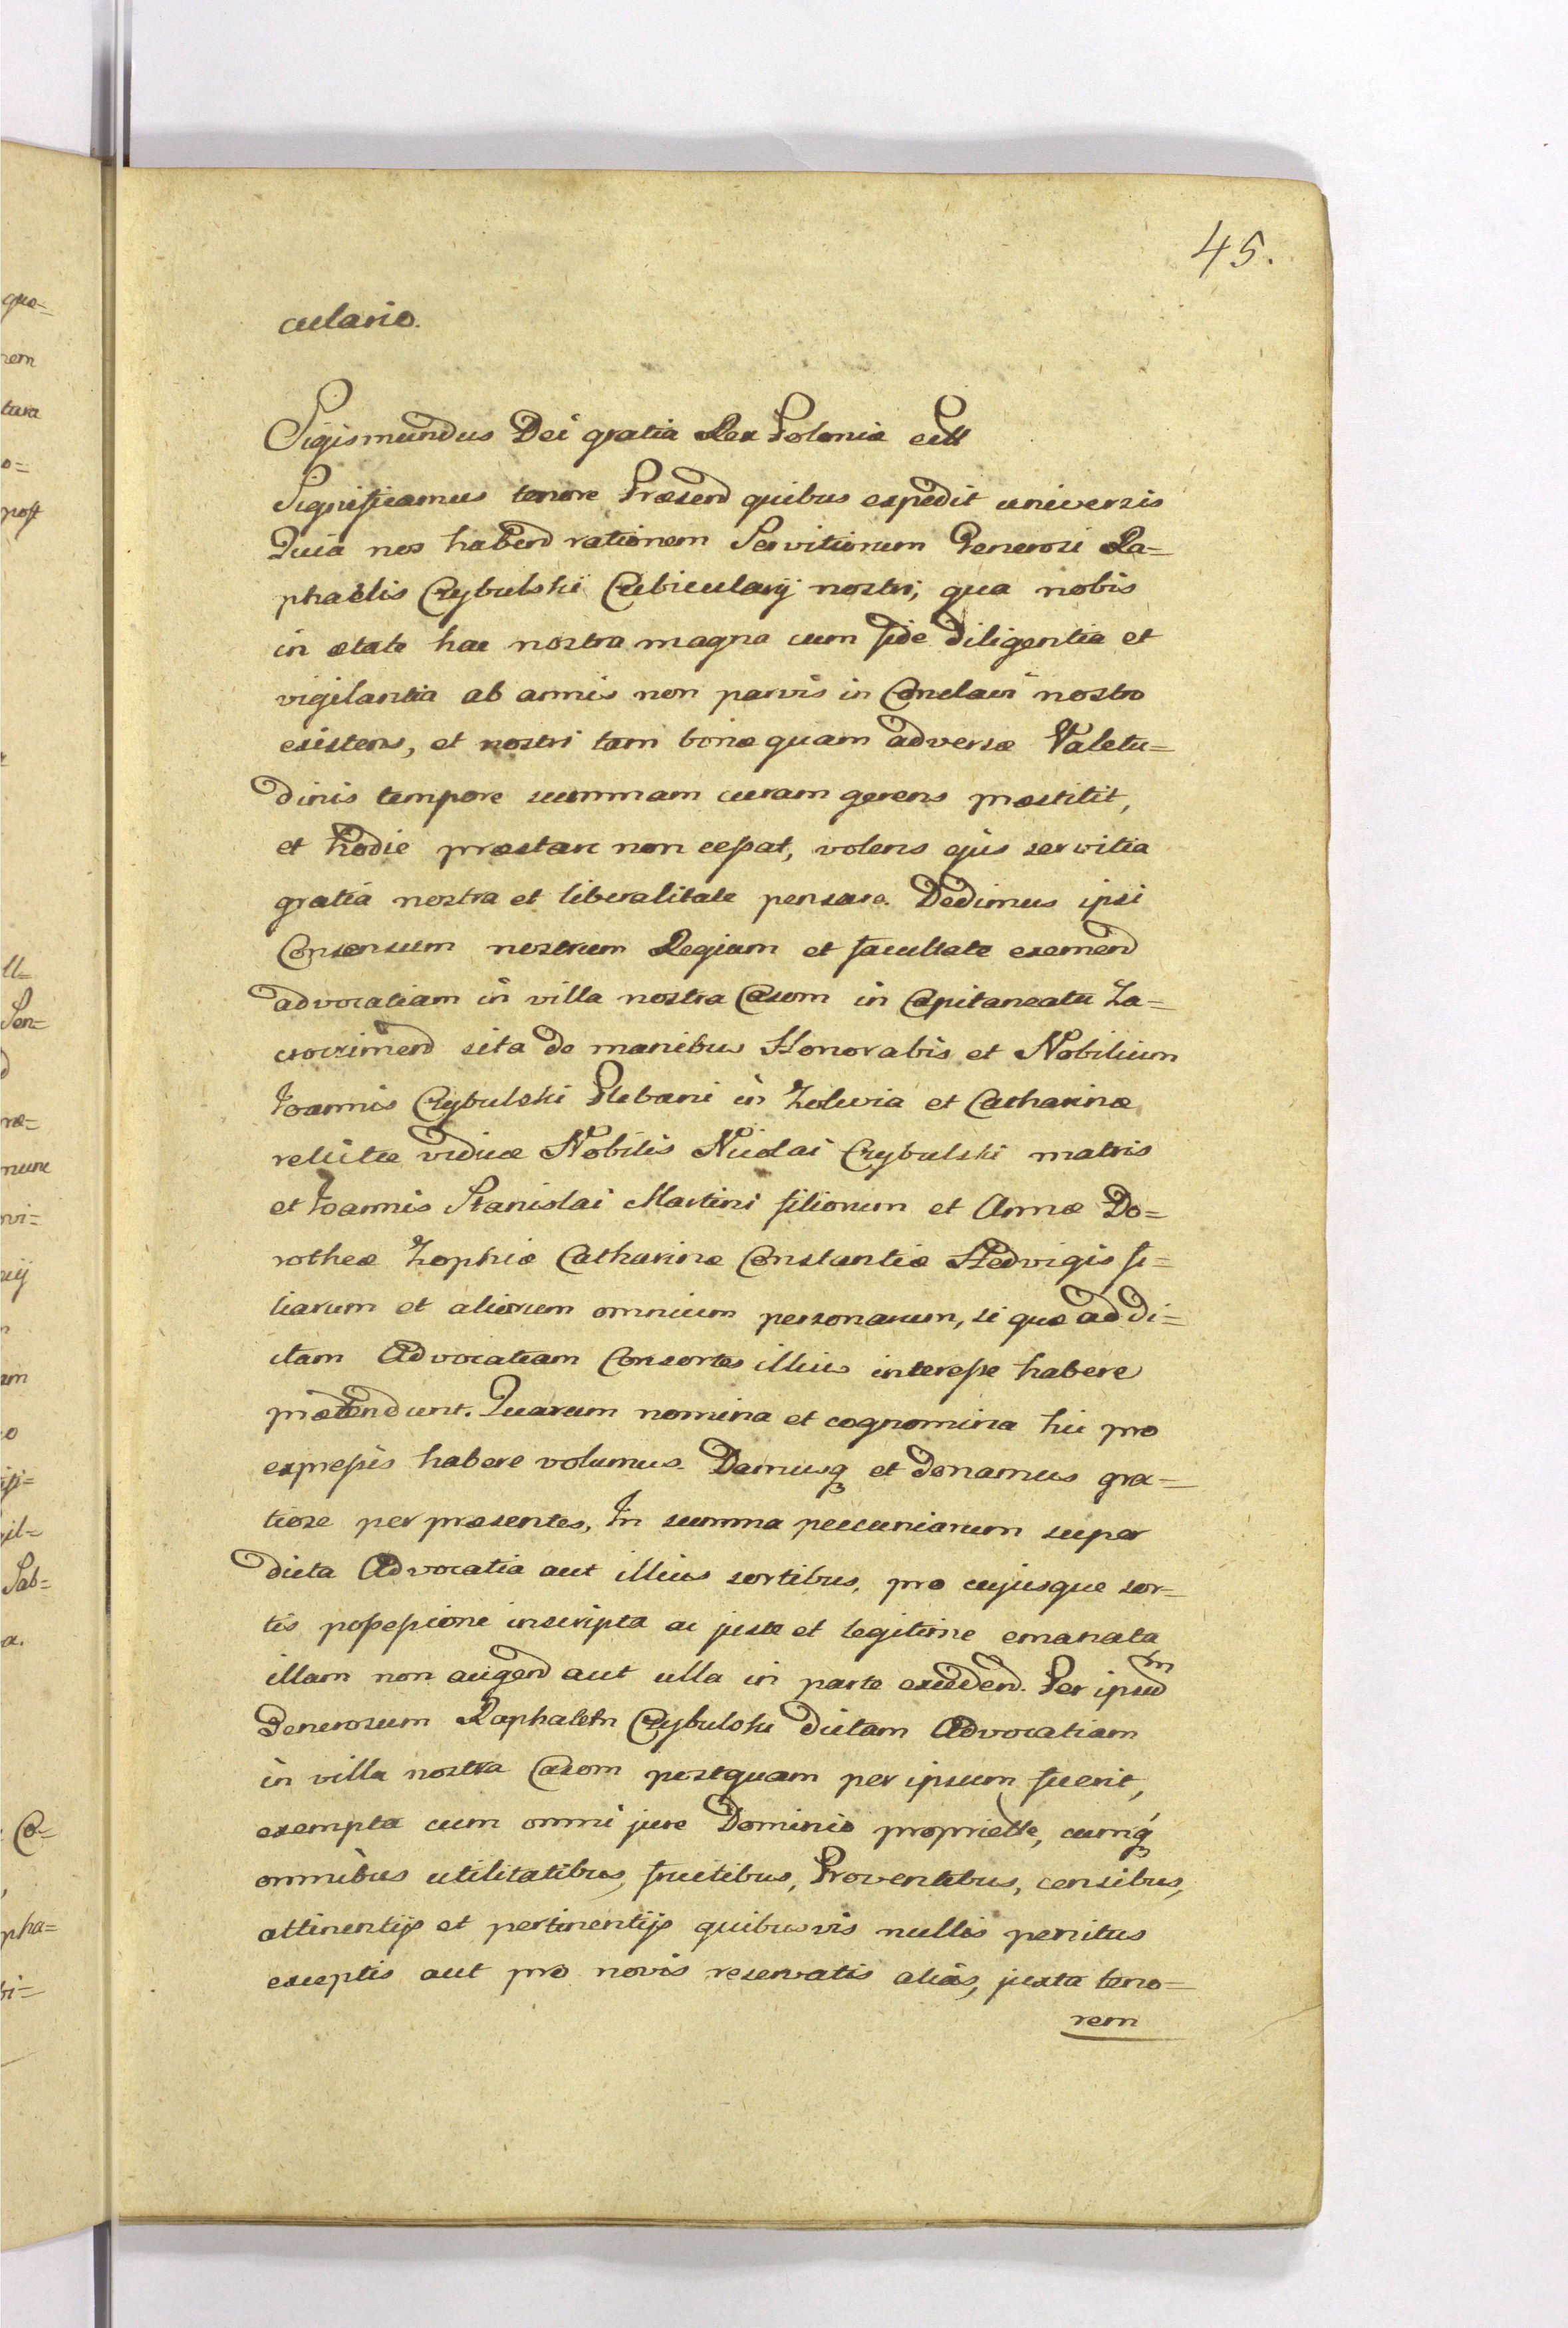 45.
culario.
Sigismundus Dei gratia Rex Poloniæ ett
Significamus tenore Præsend quibus expedit universis
Quia nos habend rationem Servitiorum Generosi Ra=
phaelis Czybulski Cubicularij nostri, qua nobis
in ætate hac nostra magna cum fide diligentia et
vigilantia ab annis non parvis in Conclavi nostro
existens, et nostri tam bonæ quam adversæ Valetu=
dinis tempore summam curam gerens præstitit,
et hodie præstare non ceßat, volens ejus servitia
gratia nostra et liberalitate pensare. Dedimus ipsi
Consensum nostrum Regium et facultate exemend
advocatiam in villa nostra Casom in Capitaneatu Za=
crocrimend sita de manibus Honorabis et Nobilium
Joannis Czybulski Plebani in Zoluvia et Catharinæ
relictæ viduæ Nobilis Nicolai Czybulski matris
et Joannis Stanislai Martini filiorum et Annæ Do=
rotheæ Zophiæ Catharinæ Constantiæ Hedvigis fi=
liarum et aliorum omnium personarum, si quæ ad di=
ctam Advocatiam Consortes illius intereße habere
prætendunt. Quarum nomina et cognomina hic pro
expreßis habere volumus. Damusq et donamus gra=
tiose per præsentes, In summa pecuniarum super
dicta Advocatia aut illius sortibus, pro cujusque sor=
tis poßeßione inscripta ac juste et legitime emanata
illam non augend aut ulla in parte excedend. Per ipsud m
Generosum Raphalem Czybulski dictam Advocatiam
in villa nostra Casom postquam per ipsum fuerit,
exempta cum omni jure Dominio proprietté, cumq
omnibus utilitatibus, fructibus, Proventibus, censibus,
attinentijs et pertinentijs quibusvis nullis penitus
exceptis aut pro novis reservatis alias, juxta teno=
rem